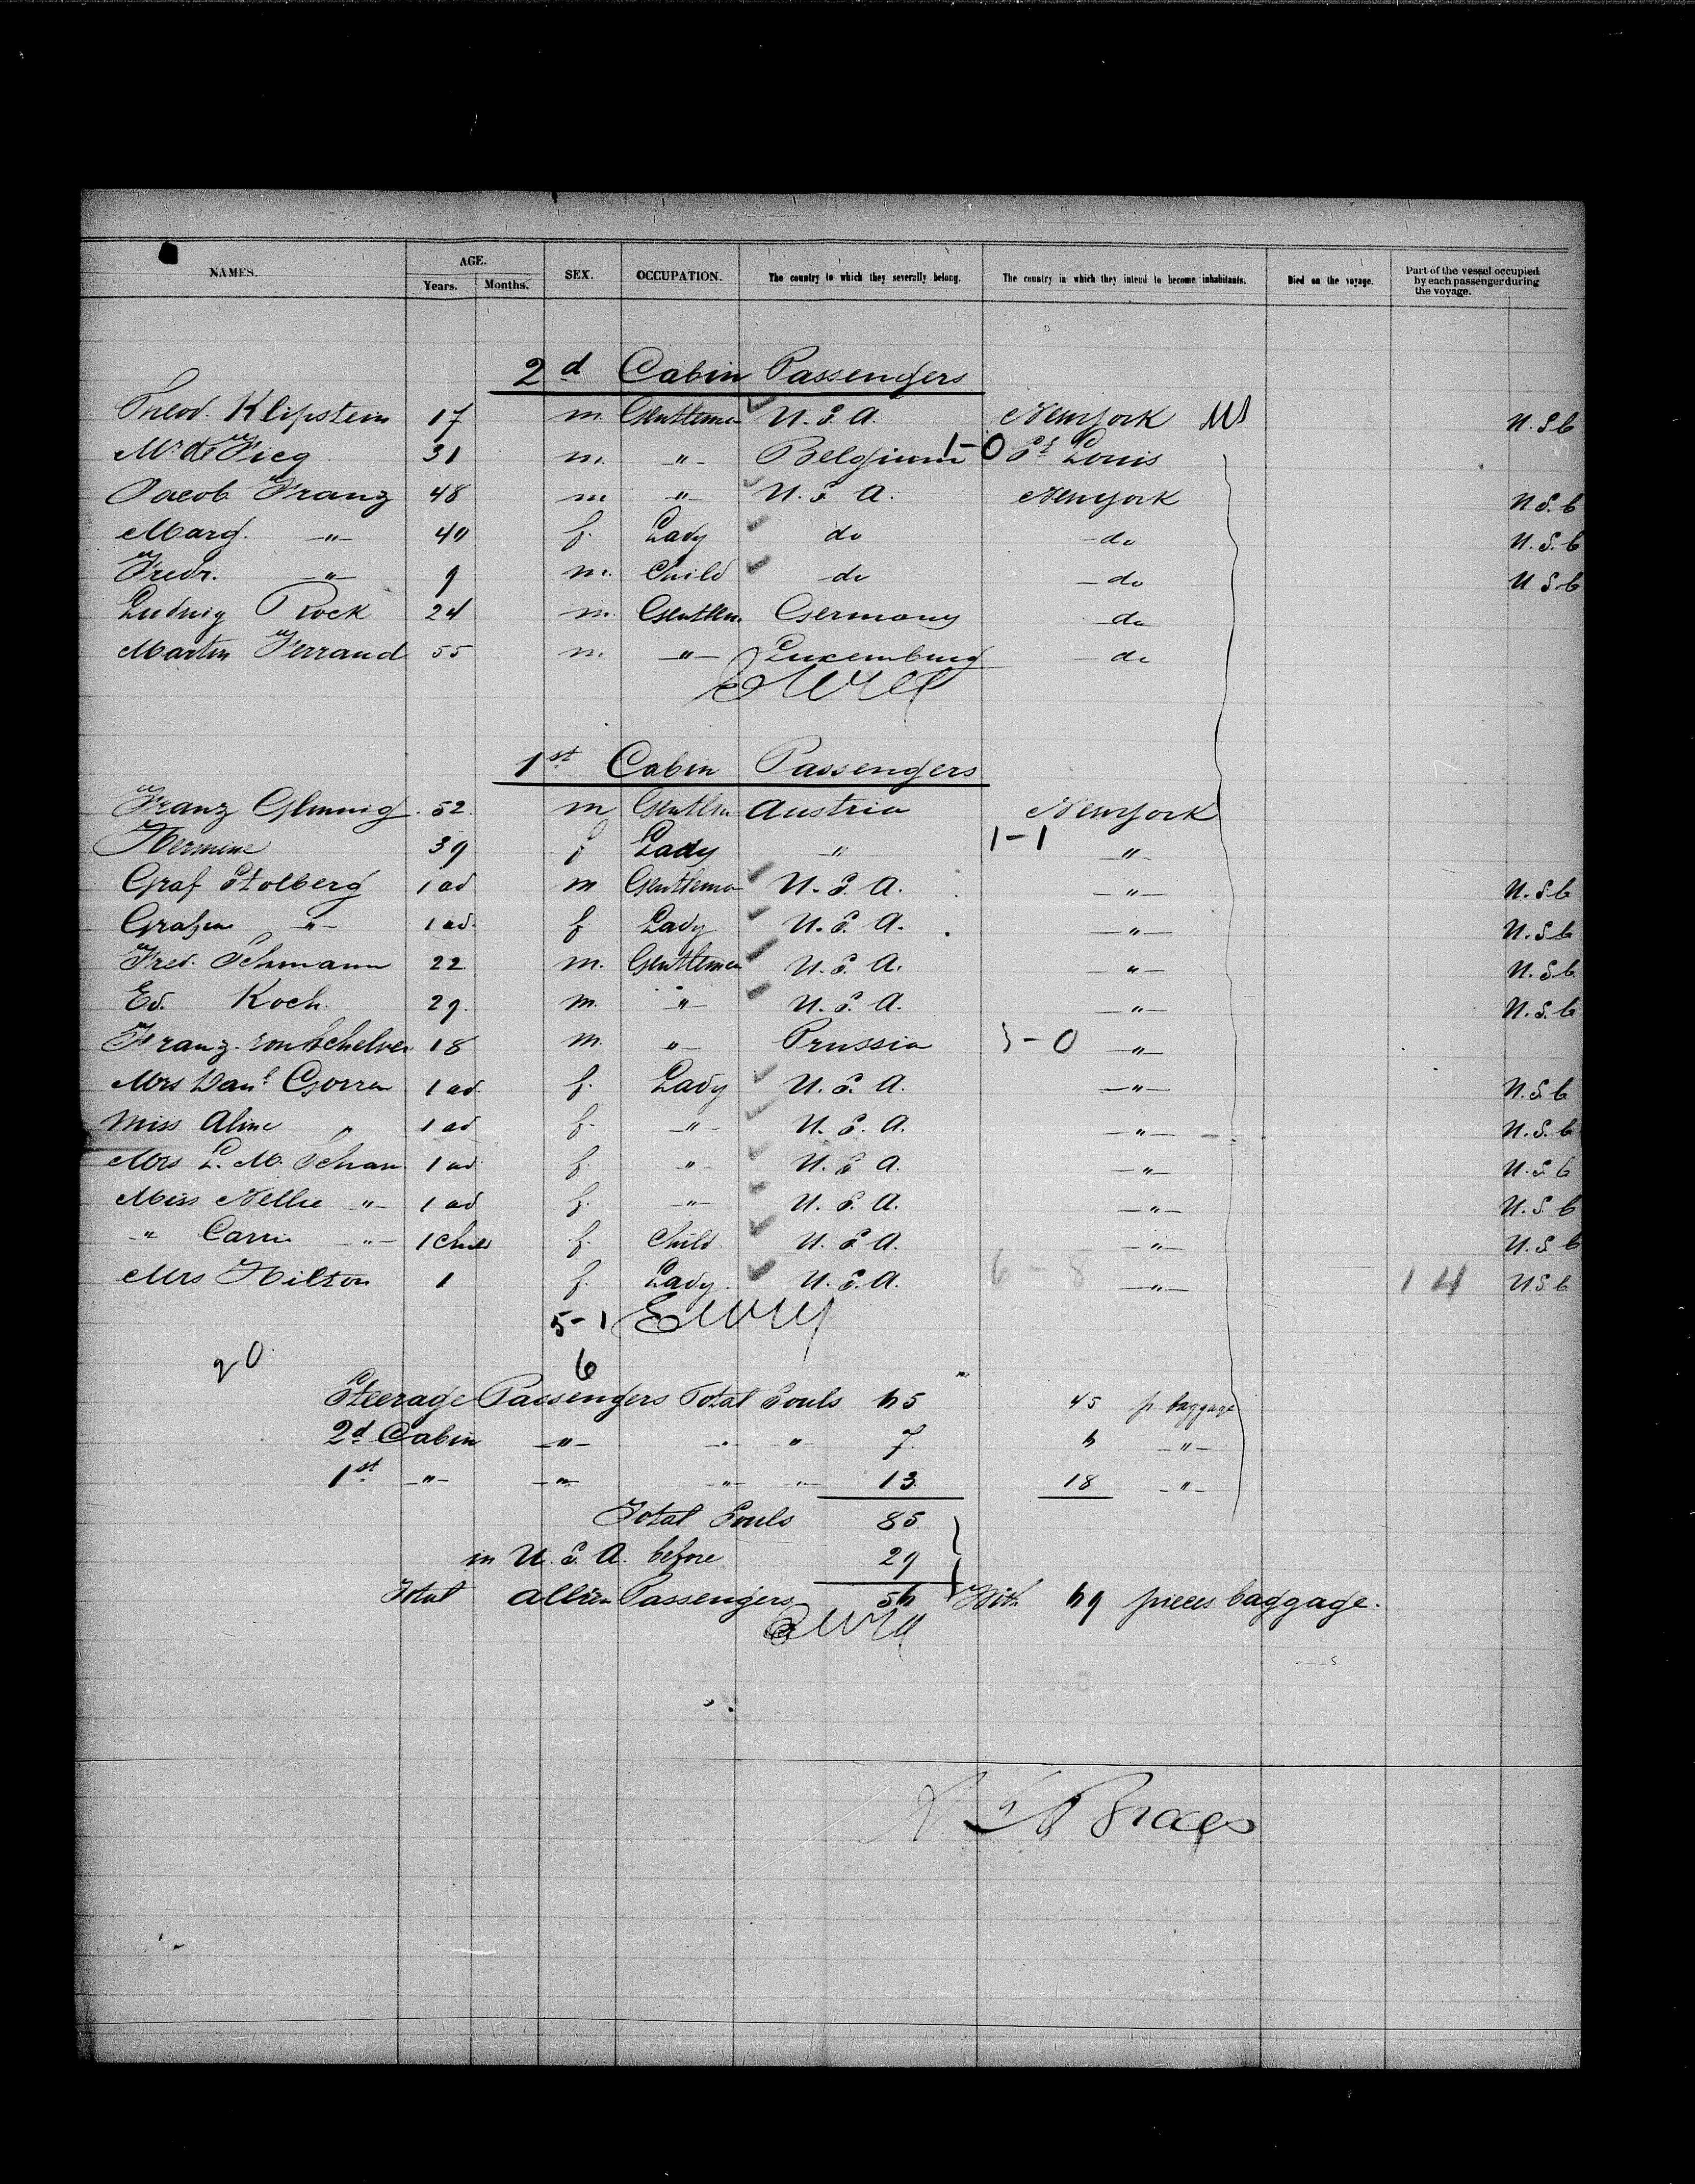 NAMES. AGE. SEX. OCCUPATION. The country to which they severally belong. The country in which they intend to become inhabitants. Died on the voyage. Part of the vessel occupied by each passenger during the voyage.
Years. Months.
2d Cabin Passengers
Theod. Klipstein 17 m. Gentleman U.S.A. Newyork U.S.C
Mr de 31 m. -"- Belgium 1-0 St Louis
Jacob Franz 48 m -"- U.S.A. Newyork U.S.C
Marg. -"- 40 f. Lady do -do U.S.C
Fredr. -"- 9 m. Child do -do U.S.C
Ludwig Rock 24 m. Gentlem. Germany do
Martin Ferrand 55 m. -"- Luxemburg -do
1st Cabin Passengers
Franz 52. m Gentlem Austria Newyork
Hermine 39 f Lady -"- 1-1 -"-
Graf Stolberg 1 ad m Gentleman U.S.A. -"- U.S.C
Grafin -"- 1 ad. f Lady U.S.A. -"- U.S.C
Fred. Schmann 22 m. Gentleman U.S.A. -"- U.S.C
Ed. Koch. 29. m. -"- U.S.A. -"- U.S.C
Franz von Schelver 18 m. -"- Prussia -0 -"-
Mrs Danl Gorren 1 ad. f. Lady U.S.A. -"- U.S.C
Miss Aline " 1 ad f. -"- U.S.A. -"- U.S.C
Mrs L. M. Schan 1 ad. f. -"- U.S.A. -"- U.S.C
Miss Nellie -"- 1 ad f. -"- U.S.A. -"- U.S.C
-" Carrie -"- 1 Child f. Child. U.S.A. -"- U.S.C
Mrs Hilton 1 f. Lady. U.S.A. 6-8 -"- 14 U.S.C
5-1
6
Steerage Passengers Total Souls 65 45 p baggage
2d Cabin -"- -"- " 7. 6 -"-
1st -"- -"- -"- -"- 13. 18 -"-
Total Souls 85
in U.S.A. before 29
Total Allien Passengers 56 With 69 pieces baggage.